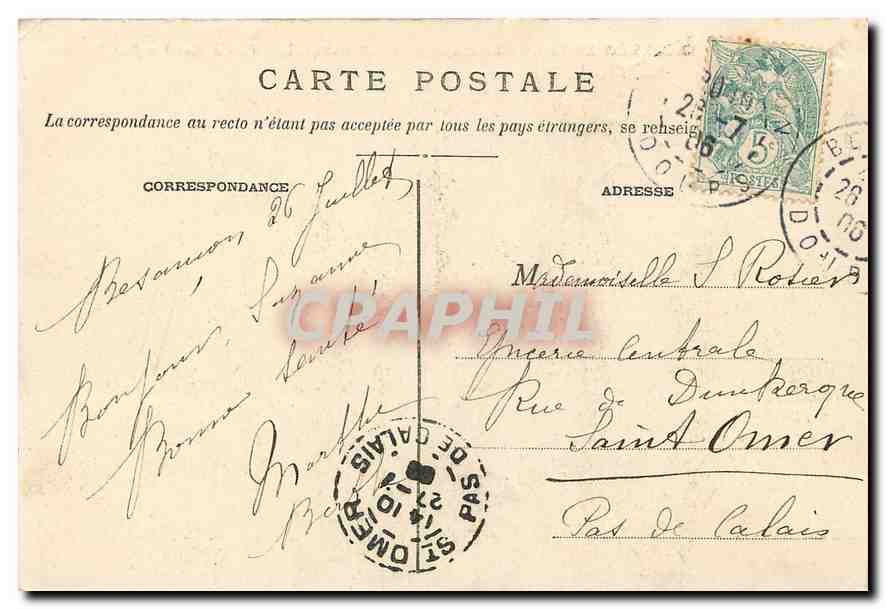 CARTE POSTALE
La correspondance au recto n'étant pas acceptée par tous les pays étrangers, se renseig
CORRESPONDANCE
Besançon 26 Juillet
Bonjour Suzanne
Bonne Santé
Marthe
ADRESSE
Mademoiselle S Rosier
Epicerie Centrale
Rue de Dunkerque
Saint Omer
Pas de Calais
5c
POSTES
BE
26
06
DOUB
ST OMER
PAS DE CALAIS
14 10
27 -7
06
CPAPHIL